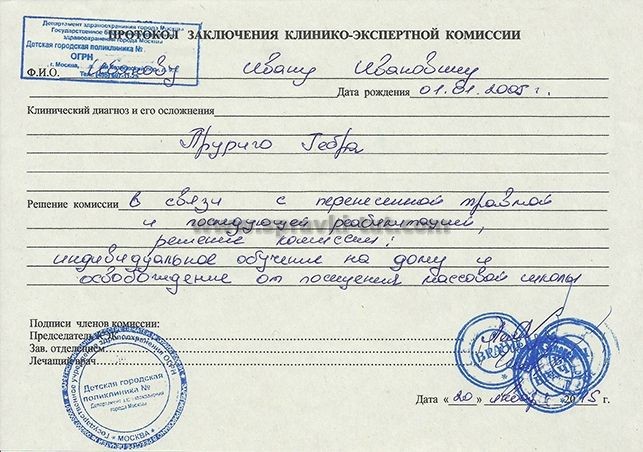 Департамент здравоохранения города Москвы
Государственное бюджетное
здравоохранения города Москвы
Детская городская поликлиника №
ОГРН
г. Москва,
ПРОТОКОЛ ЗАКЛЮЧЕНИЯ КЛИНИКО-ЭКСПЕРТНОЙ КОМИССИИ
Ф.И.О. Иванову Ивану Ивановичу
Дата рождения 01.01.2005 г.
Клинический диагноз и его осложнения
Пруриго Гебра
Решение комиссии в связи с перенесенной травмой
и последующей реабилитацией,
решение комиссии:
индивидуальное обучение на дому и
освобождение от посещения массовой школы
Подписи членов комиссии:
Председатель КЭК
Зав. отделением
Лечащий врач
Детская городская
поликлиника №
города Москвы
* МОСКВА *
ВРАЧ
Дата «20» 2015 г.